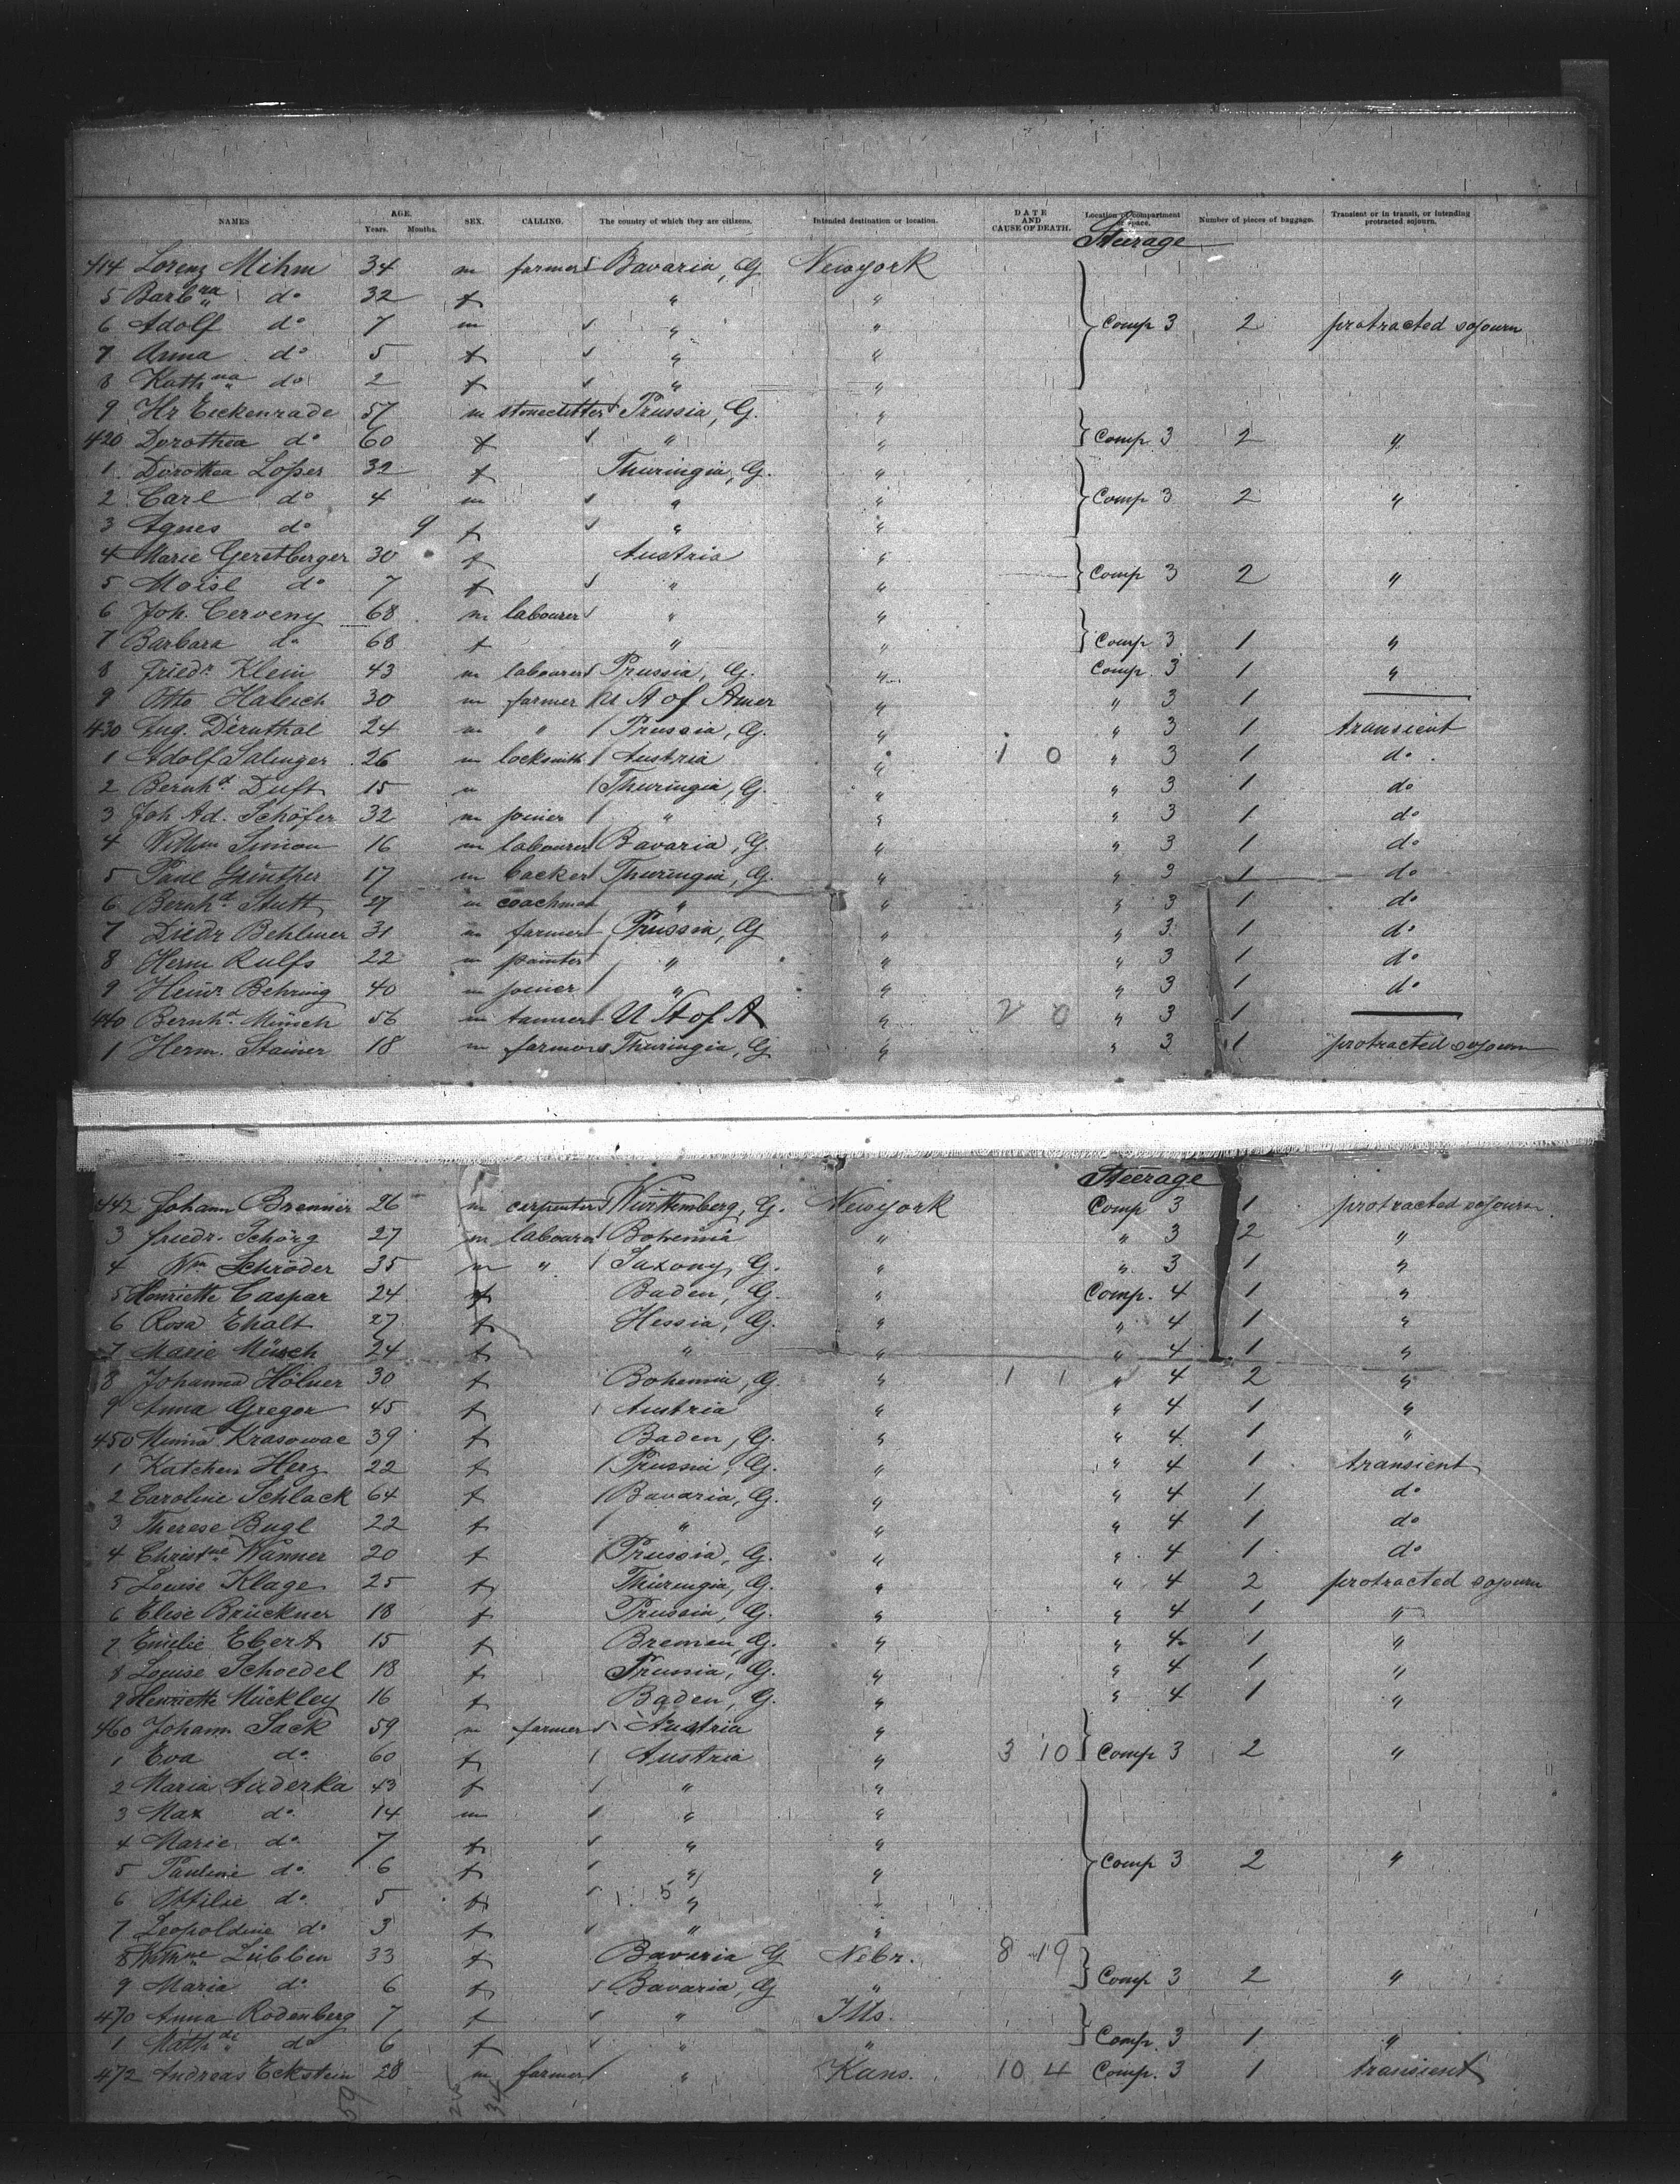 NAMES AGE. Years. Months. SEX. CALLING. The country of which they are citizens. Intended destination or location. DATE AND CAUSE OF DEATH. Location of compartment or space. Number of pieces of baggage. Transient or in transit, or intending protracted sojourn.
Steerage
414 Lorenz Mihm 34 m farmer Bavaria, G. Newyork
5 Barbra do 32 f " "
6 Adolf do 7 m " " Comp 3 2 protracted sojourn
7 Anna do 5 f " "
8 Kathna do 2 f " "
9 Hr Eickenrade 57 m stonecutter Prussia, G. "
420 Dorothea do 60 f " " Comp. 3 2 "
1 Dorothea Loßer 32 f Thuringia, G. "
2 Carl do 4 m " " Comp 3 2 "
3 Agnes do 9 f " "
4 Marie Geretberger 30 f Austria "
5 Moisl do 7 f " " Comp 3 2 "
6 Joh. Cerveny 68 m labourer " "
7 Barbara do 68 f " " Comp 3 1 "
8 Friedr. Klein 43 m labourer Prussia, G. " Comp. 3 1 "
9 Otto Habich 30 m farmer U St of Amer " " 3 1
430 Eug. Deruthal 24 m " Prussia, G. " " 3 1 transient
1 Adolf Salinger 26 m locksmith Austria " 1 0 " 3 1 do.
2 Bernhd Duft 15 m Thuringia, G. " " 3 1 do
3 Joh Ad. Schöfer 32 m joiner " " " 3 1 do
4 Wilhm Simon 16 m labourer Bavaria, G. " " 3 1 do
5 Paul Günther 17 m backer Thuringia, G. " " 3 1 do
6 Bernhd Stutt 27 m coachman " " " 3 1 do
7 Diedr Behlmer 31 m farmer Prussia, G " " 3 1 do
8 Herm Rulfs 22 m painter " " " 3 1 do
9 Heinr. Behring 40 m joiner " " " 3 1 do
440 Bernhd Münch 56 m tanner U St of A " 2 0 " 3 1
1 Herm. Stainer 18 m farmer Thuringia, G " " 3 1 protracted sojourn
Steerage
442 Johann Brenner 26 m carpenter Württemberg, G. Newyork Comp 3 1 protracted sojourn.
3 Friedr. Schörg 27 m labourer Bohemia " " 3 2 "
4 Wm Schröder 35 m " Saxony, G. " " 3 1 "
5 Henriette Caspar 24 f Baden, G. " Comp. 4 1 "
6 Rosa Ehalt 27 f Hessia, G. " " 4 1 "
7 Marie Müsch 24 f " " " 4 1 "
8 Johanna Hölner 30 f Bohemia, G. " 1 1 " 4 2 "
9 Anna Gregor 45 f Austria " " 4 1 "
450 Minna Krasowae 39 f Baden, G. " " 4 1 "
1 Katchen Herz 22 f Prussia, G. " " 4 1 transient
2 Caroline Schlack 64 f Bavaria, G. " " 4 1 do
3 Therese Bugl 22 f " " " 4 1 do
4 Christne Wanner 20 f Prussia, G. " " 4 1 do
5 Louise Klage 25 f Thuringia, G. " " 4 2 protracted sojourn
6 Elise Brückner 18 f Prussia, G. " " 4 1 "
7 Emilie Ebert 15 f Bremen, G. " " 4 1 "
8 Louise Schoedel 18 f Prussia, G. " " 4 1 "
9 Henriette Mückley 16 f Baden, G. " " 4 1 "
460 Johann Sack 59 m farmer Austria "
1 Eva do 60 f Austria " 3 10 Comp 3 2 "
2 Maria Auderka 43 f " "
3 Max do 14 m " "
4 Marie do 7 f " "
5 Pauline do 6 f " " Comp 3 2 "
6 Ottilie do 5 f 5 " "
7 Leopoldine do 3 f " "
8 Lübben 33 f Bavaria G Nebr. 8 19
9 Maria do 6 f Bavaria, G " Comp 3 2 "
470 Anna Rodenberg 7 f " Ills.
1 Mathde do 6 f " " Comp. 3 1 "
472 Andreas Eckstein 28 m farmer " Kans. 10 4 Comp. 3 1 transient
59 34